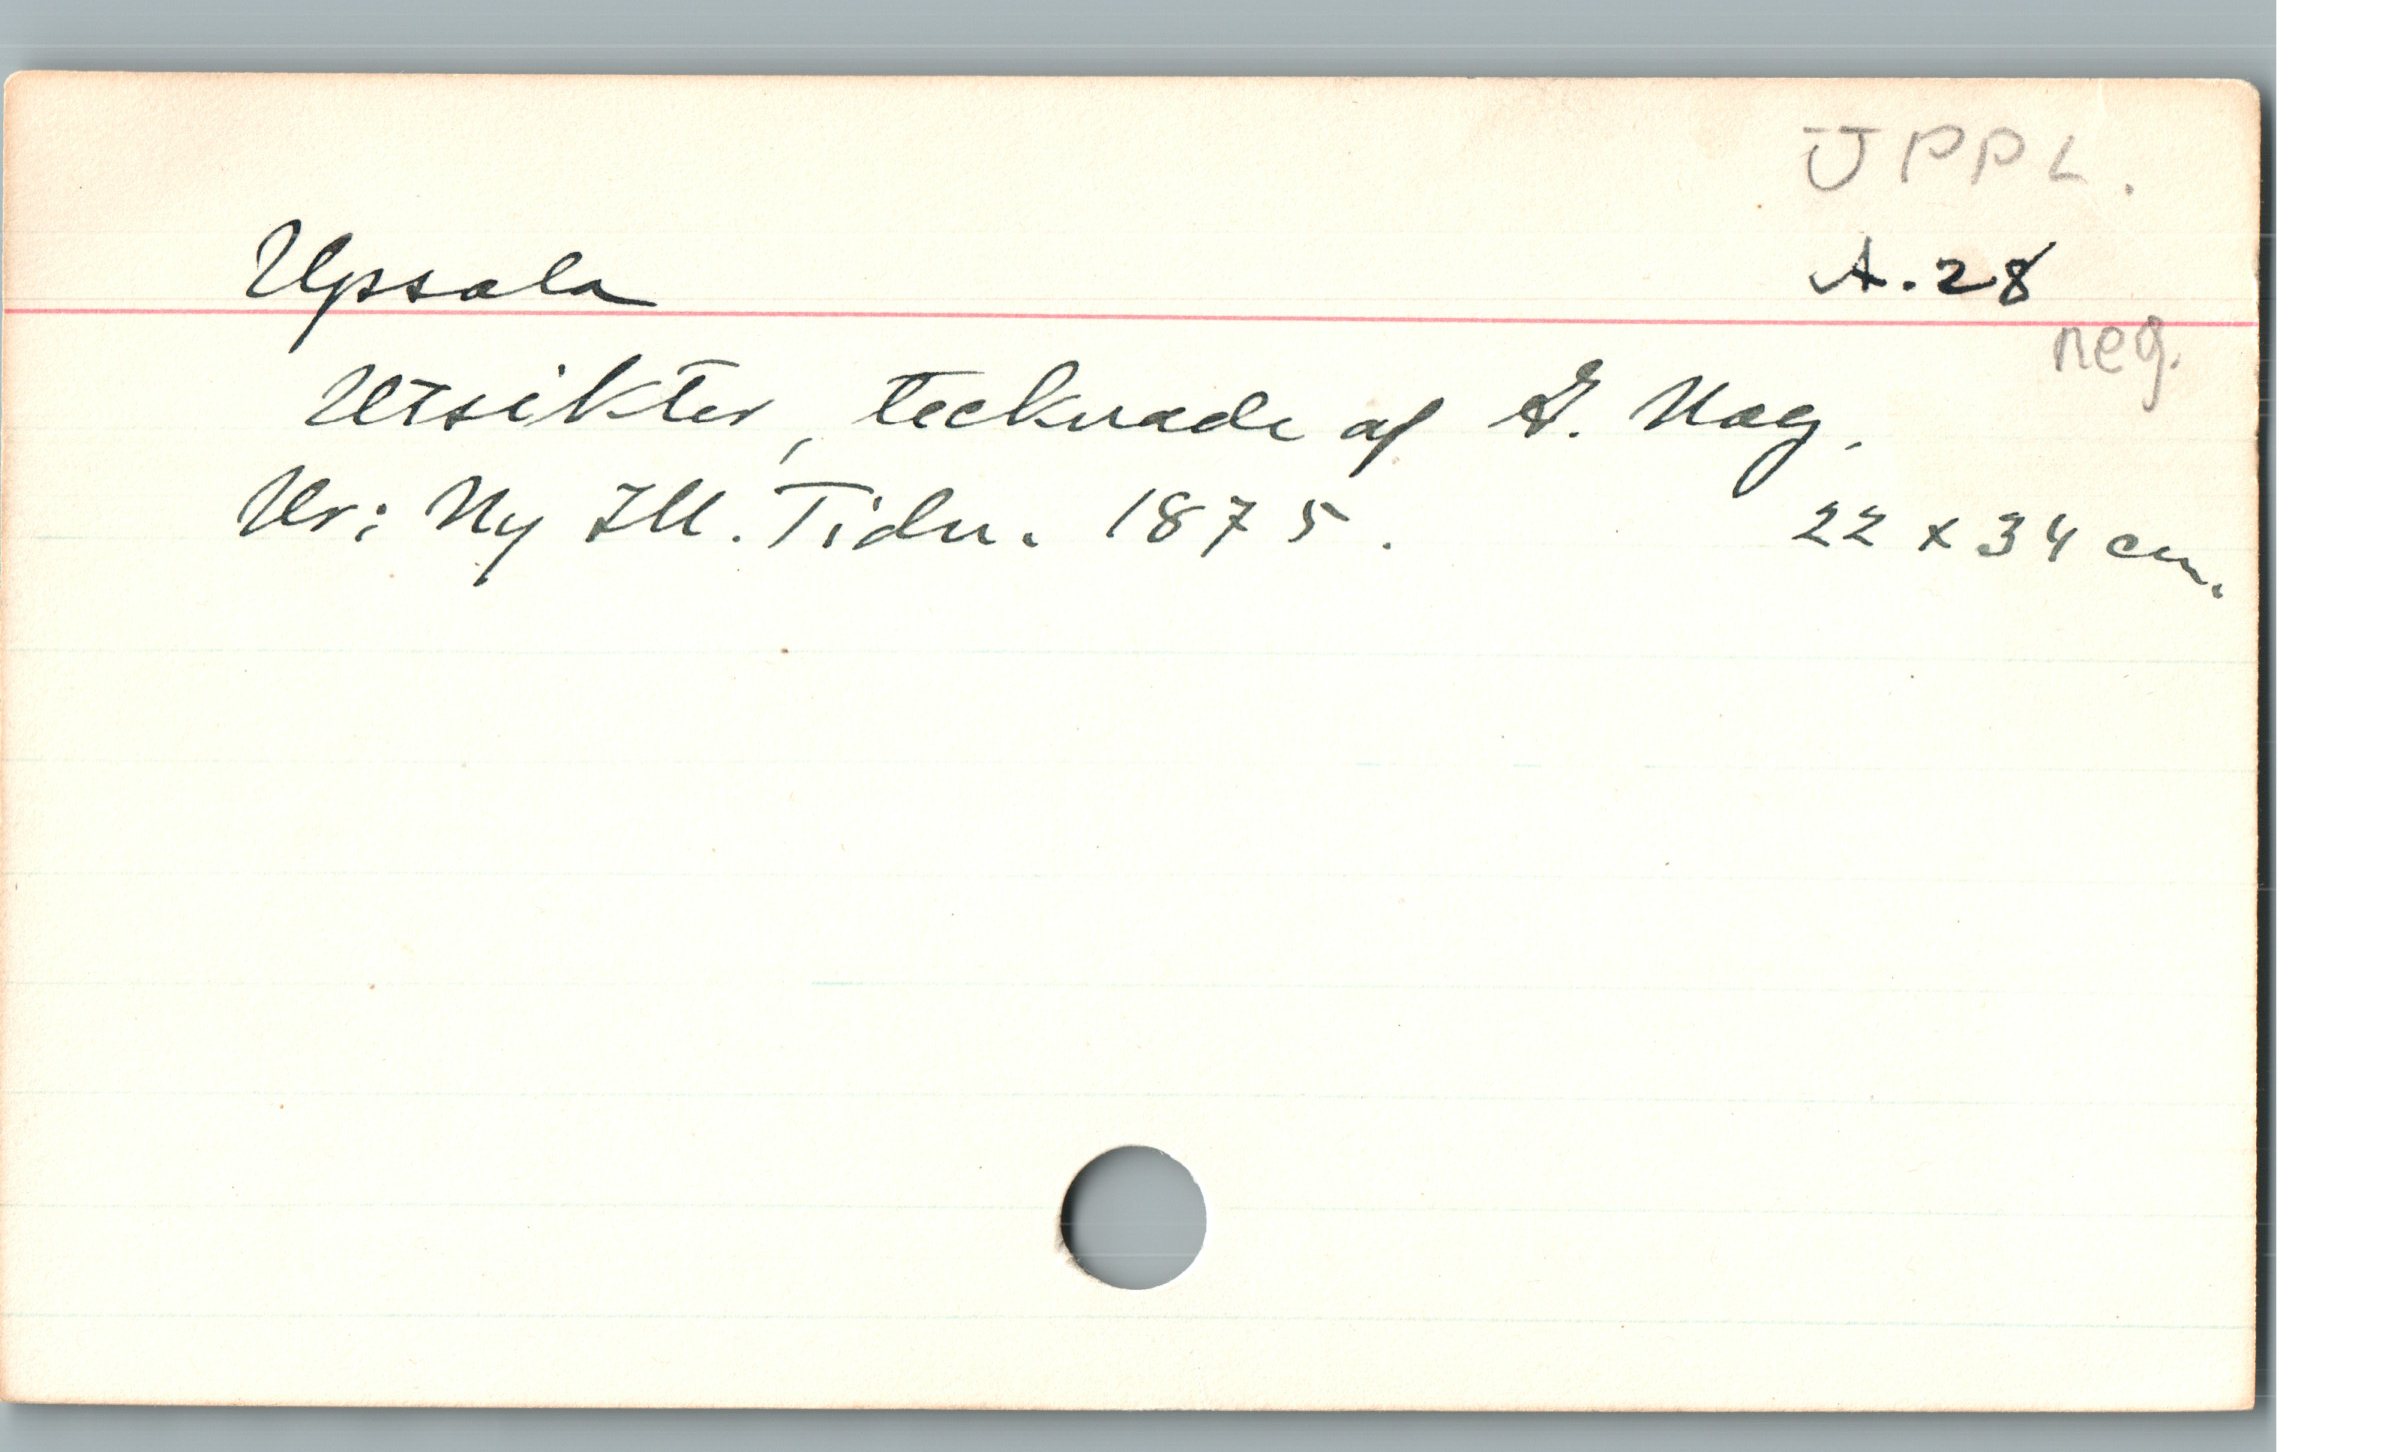 UPPL.
Upsala A.28
neg.
Utsikter, tecknade af G. Nag.
Ur: Ny Ill. Tidn. 1875. 22 x 34 cm.